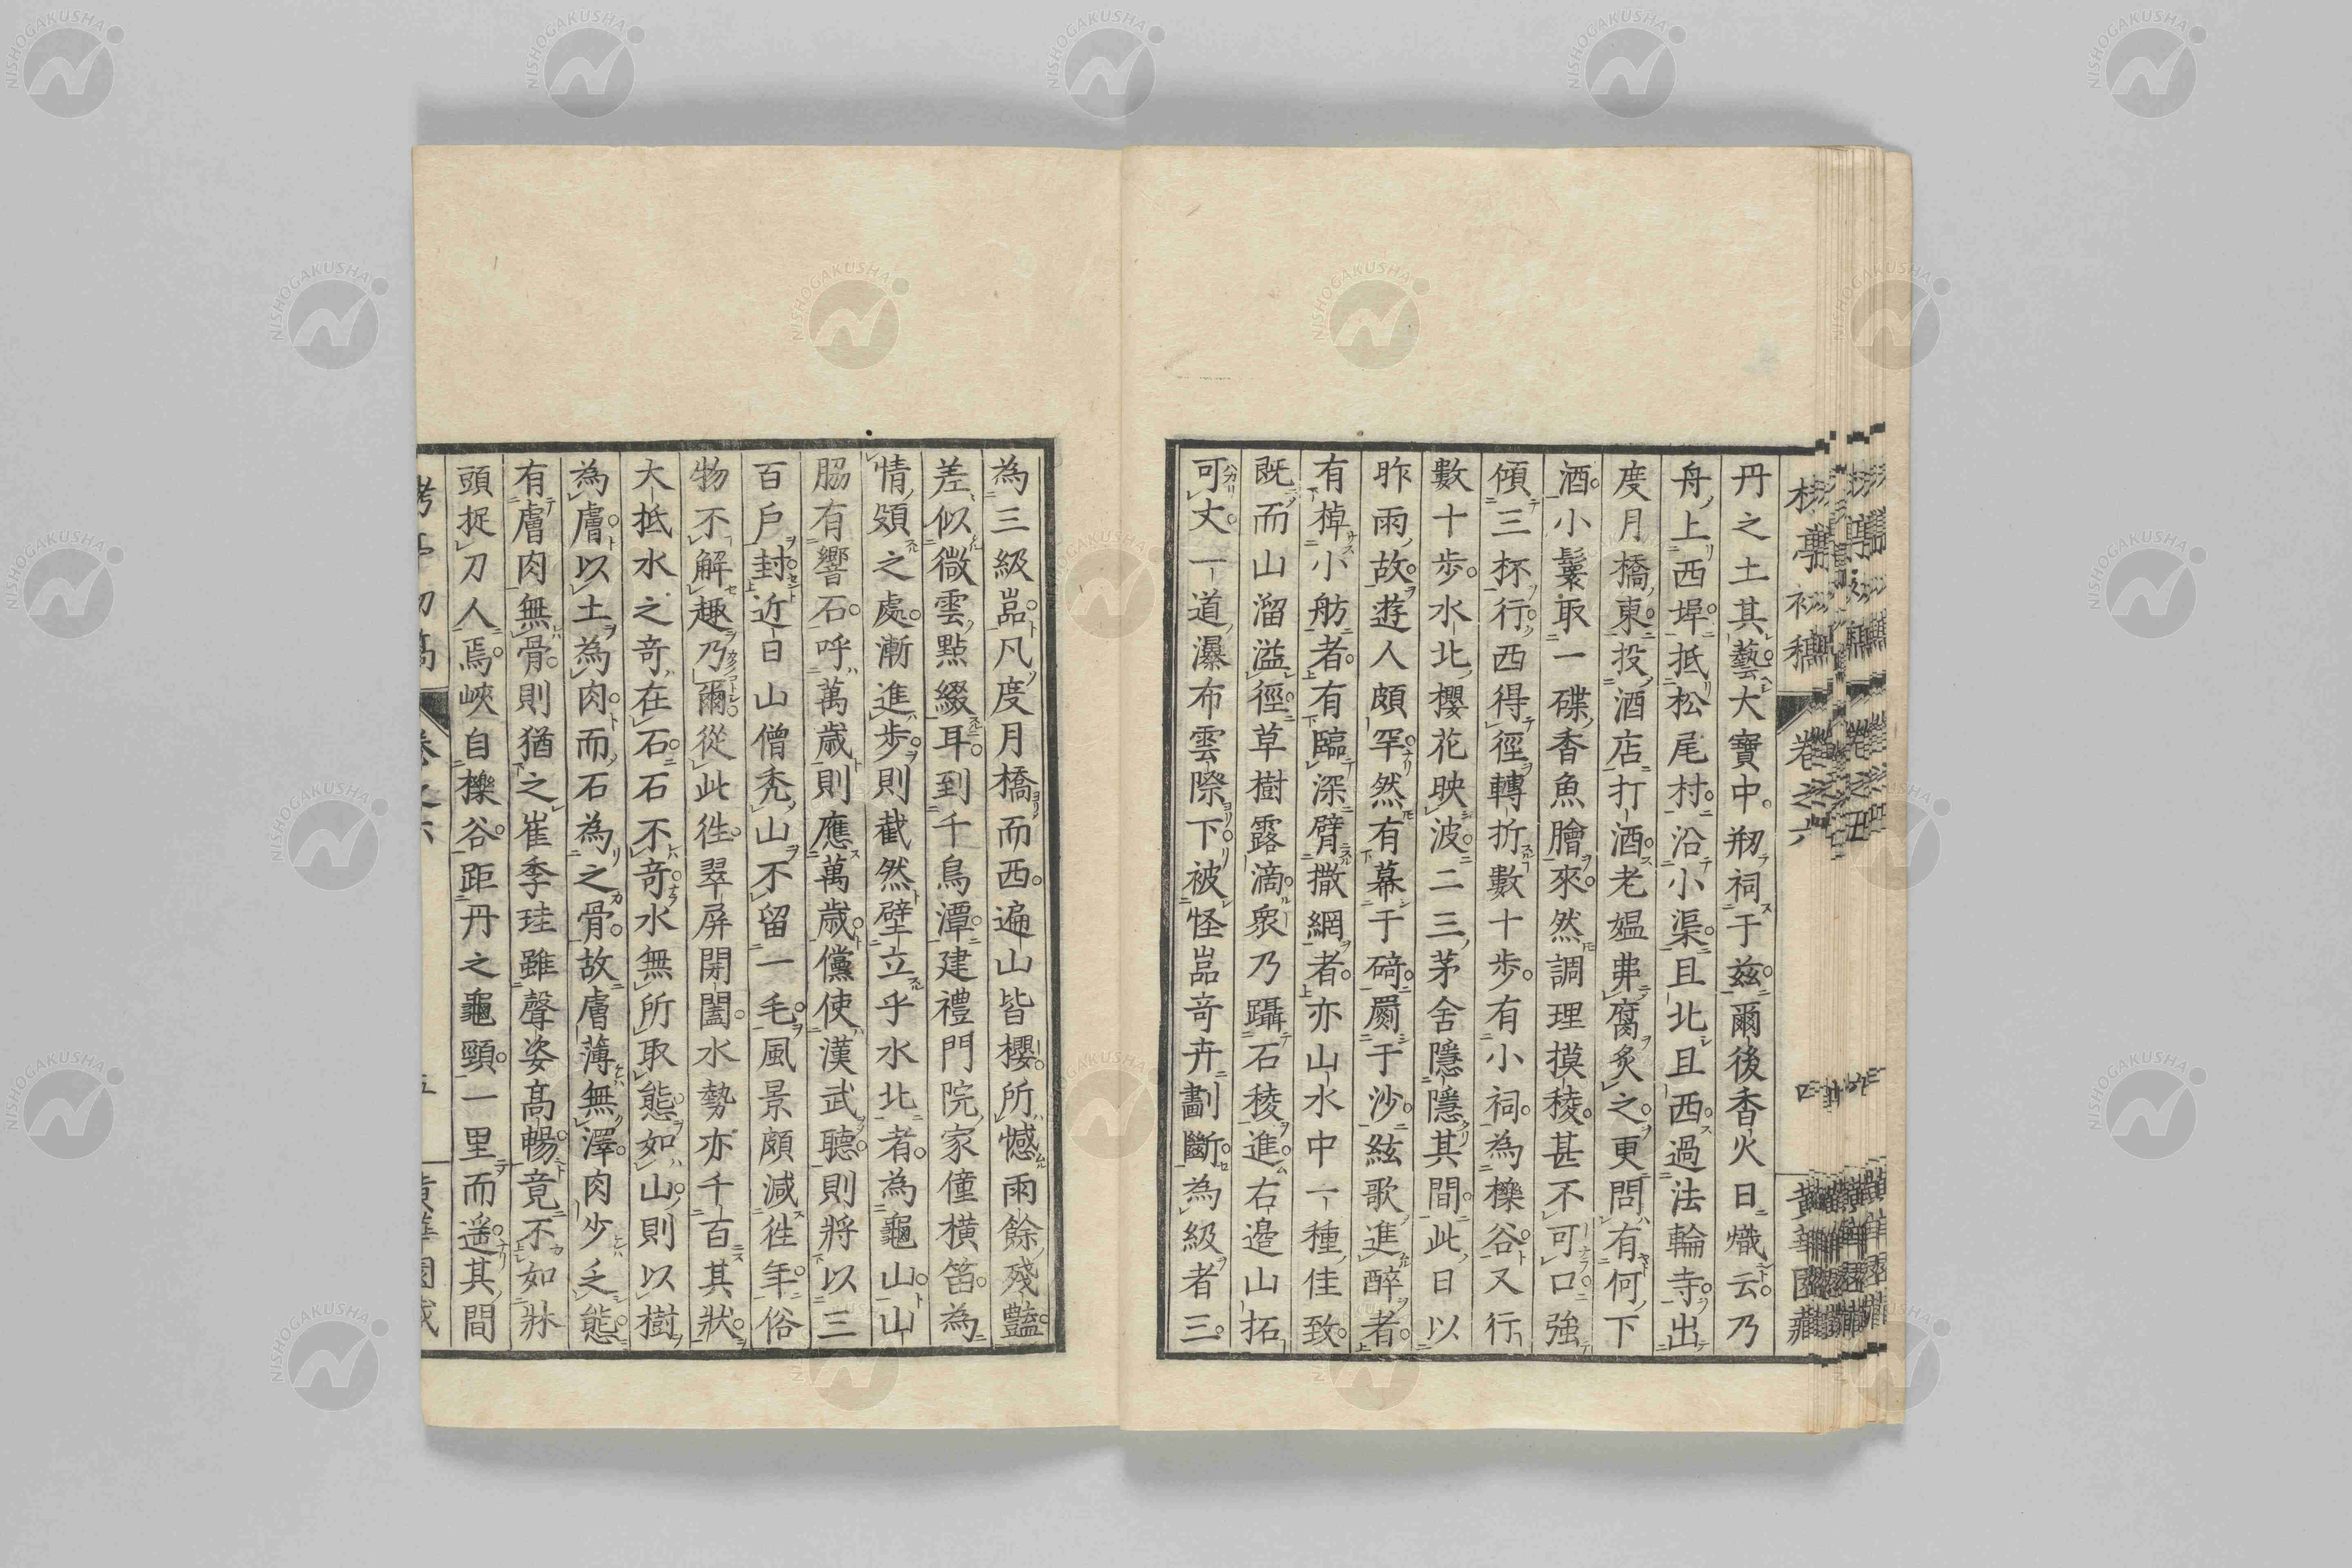 丹之土其藝大寶中剏祠于兹爾後香火日熾云乃
舟上西埠抵松尾村沿小渠且北且西過法輪寺出
度月橋東投酒店打酒老媼弗腐炙之更問有何下
酒小鬟取一碟香魚膾來然調理摸稜甚不可口強
傾三杯行西得徑轉折數十步有小祠為櫟谷又行
數十步水北櫻花映波二三茅舍隱隱其間此日以
昨雨故遊人頗罕然有幕于碕罽于沙絃歌進醉者
有棹小舫者有臨深臂撒網者亦山水中一種佳致
既而山溜溢徑草樹露滴衆乃躡石稜進右邉山拓
可丈一道瀑布雲際下被怪嵒奇卉劃斷為級者三
為三級嵒凡度月橋而西遍山皆櫻所憾雨餘殘豔
差似微雲點綴耳到千鳥潭建禮門院家僮橫笛為
情歿之處漸進步則截然壁立乎水北者為龜山山
脇有響石呼萬歲則應萬歲儻使漢武聽則將以三
百戶封近日山僧禿山不留一毛風景頗減徃年俗
物不解趣乃爾從此徃翠屏開闔水勢亦千百其狀
大抵水之奇在石石不奇水無所取態如山則以樹
為膚以土為肉而石為之骨故膚薄無澤肉少乏態
有膚肉無骨則猶之崔季珪雖聲姿高暢竟不如牀
頭捉刀人焉峽自櫟谷距丹之龜頸一里而遥其間
卷之六